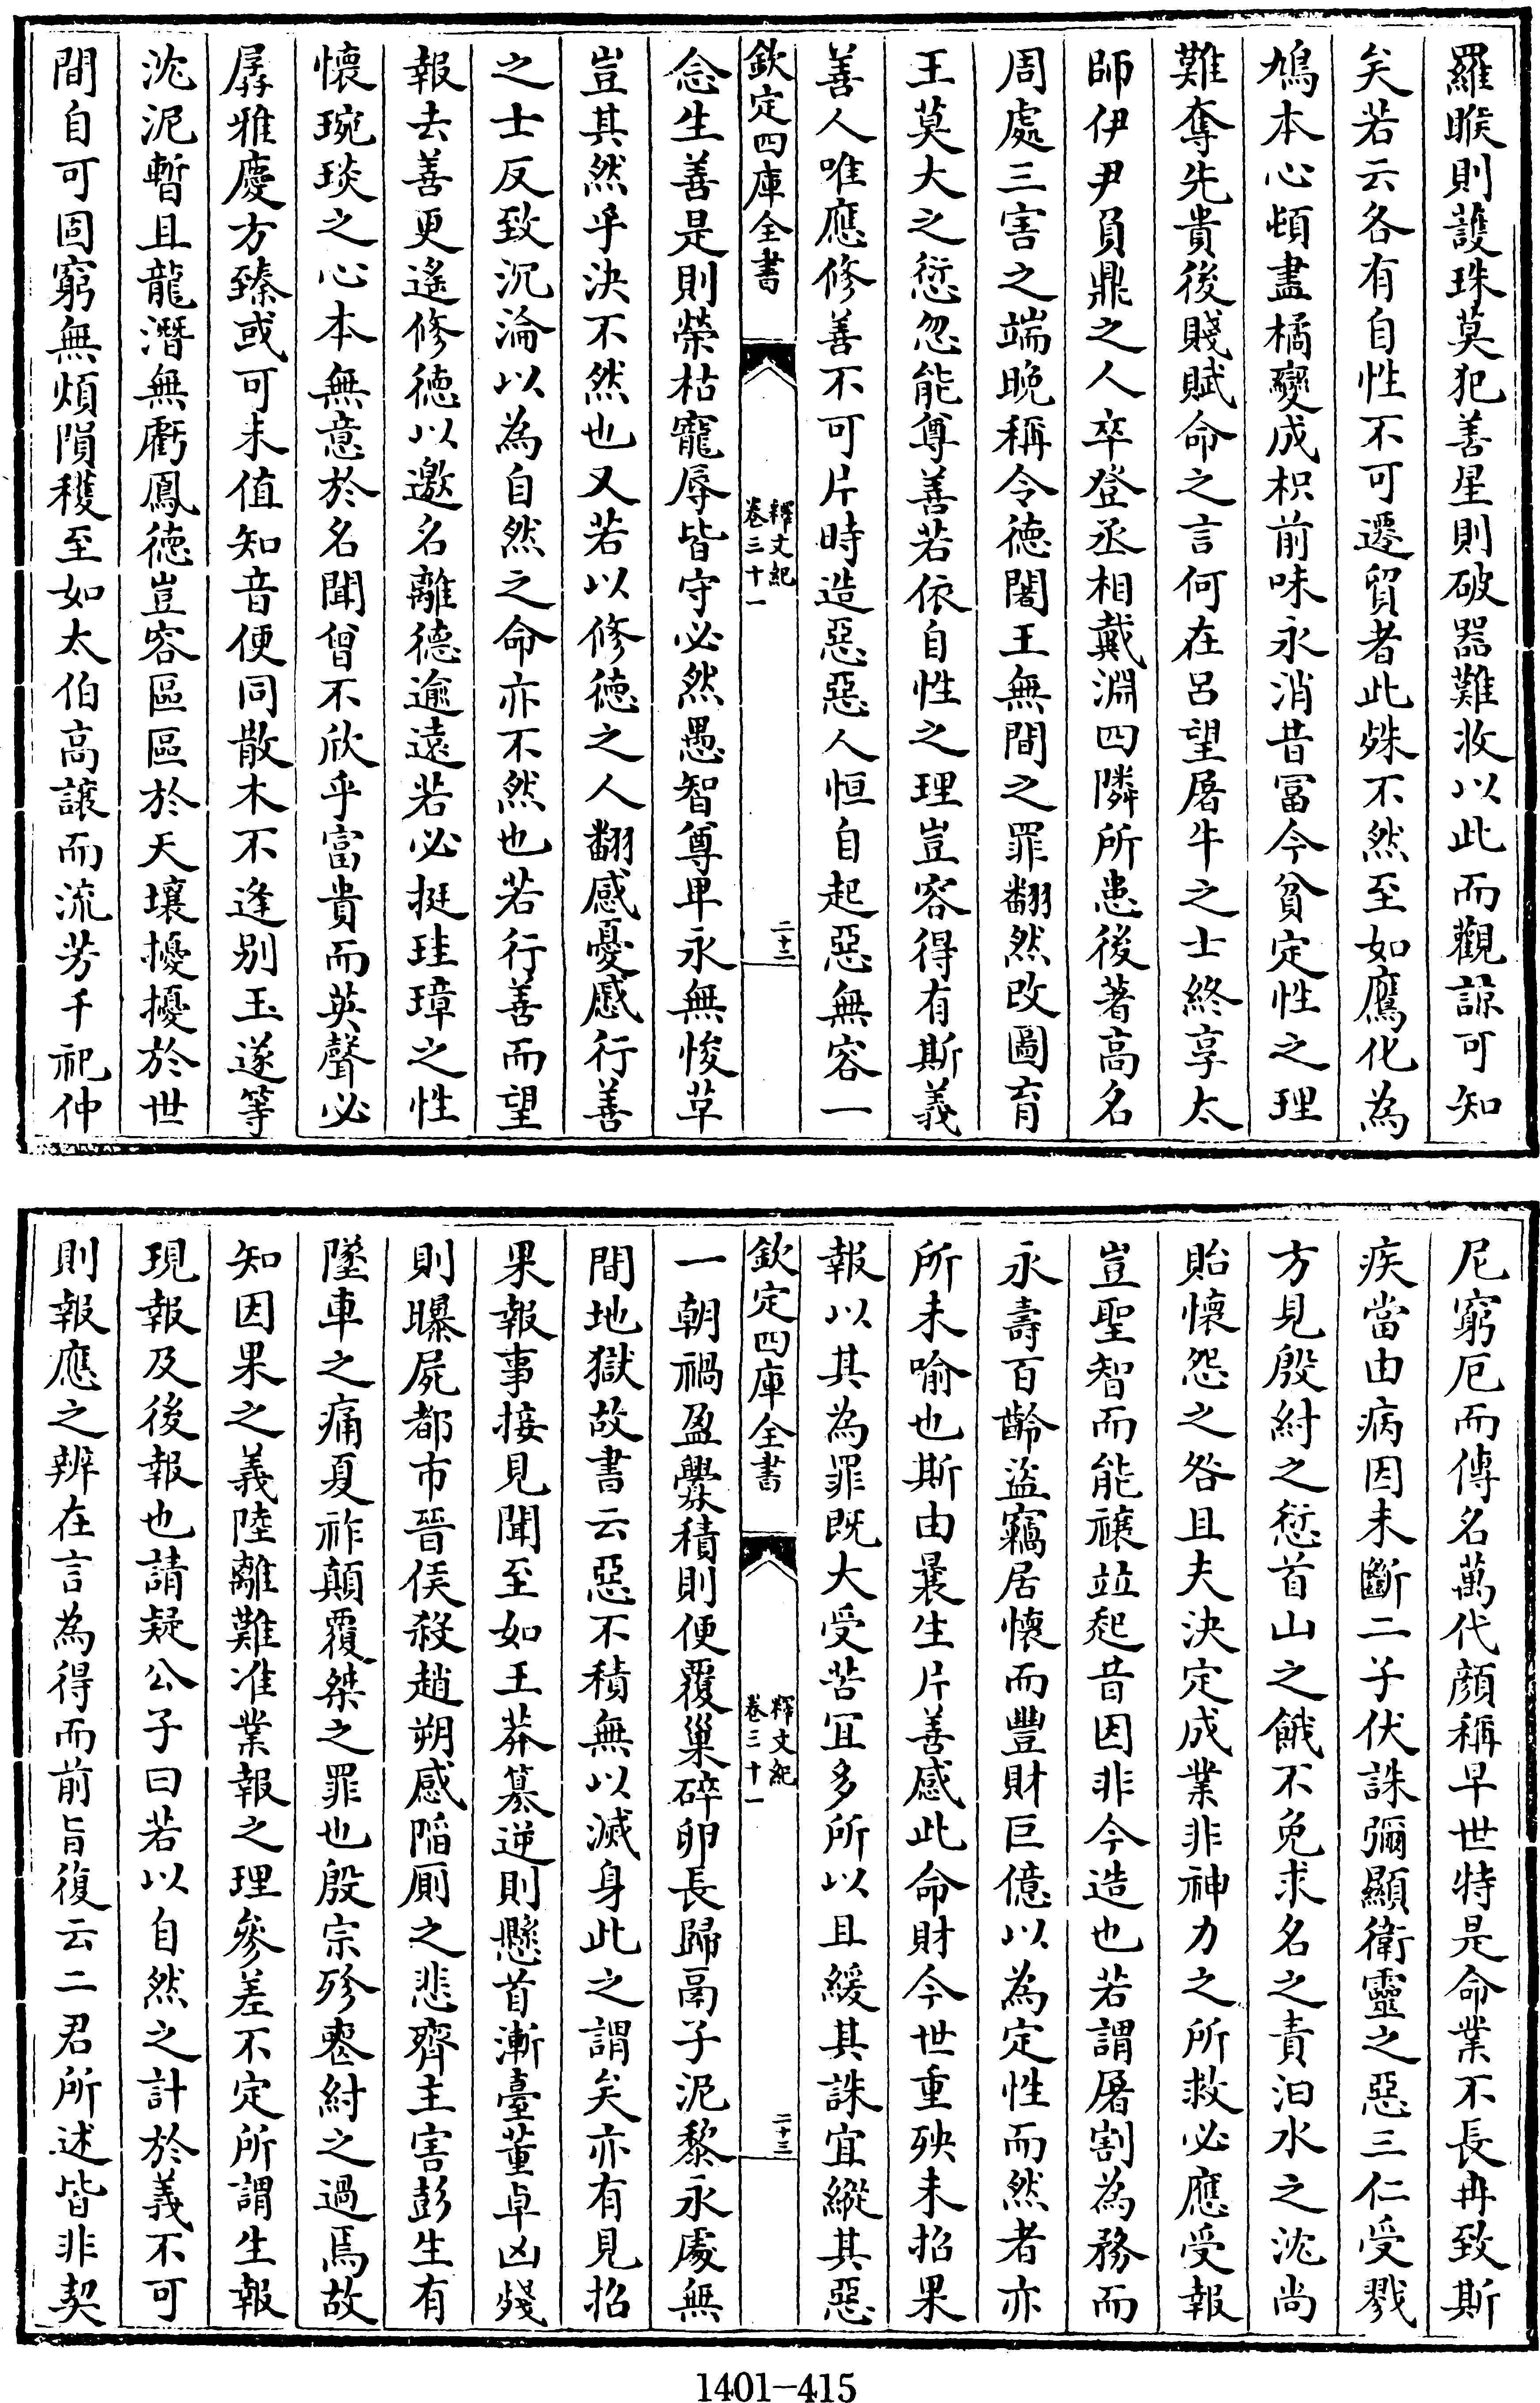 羅睺則護珠莫犯善星則破器難收以此而觀諒可知
矣若云各有自性不可遷貿者此殊不然至如鷹化為
鳩本心頓盡橘變成枳前味永消昔富今貧定性之理
難奪先貴後賤賦命之言何在呂望屠牛之士終享太
師伊尹負鼎之人卒登丞相戴淵四隣所患後著高名
周處三害之端晚稱令德闍王無間之罪翻然改圖育
王莫大之愆忽能尊善若依自性之理豈容得有斯義
善人唯應修善不可片時造惡惡人恒自起惡無容一
欽定四庫全書
釋文紀
卷三十一
二十二
念生善是則榮枯寵辱皆守必然愚智尊卑永無悛草
豈其然乎決不然也又若以修德之人翻感憂慼行善
之士反致沉淪以為自然之命亦不然也若行善而望
報去善更遙修德以邀名離德逾遠若必挺珪璋之性
懷琬琰之心本無意於名聞曾不欣乎富貴而英聲必
孱雅慶方臻或可未值知音便同散木不逢別玉遂等
沈泥暫且龍潛無虧鳳德豈容區區於天壤擾擾於世
間自可固窮無煩隕穫至如太伯高讓而流芳千祀仲
尼窮厄而傳名萬代顔稱早世特是命業不長冉致斯
疾當由病因未斷二子伏誅彌顯衛靈之惡三仁受戮
方見殷紂之愆首山之餓不免求名之責汨水之沈尚
貽懷怨之咎且夫決定成業非神力之所救必應受報
豈聖智而能禳竝起昔因非今造也若謂屠割為務而
永壽百齡盜竊居懷而豐財巨億以為定性而然者亦
所未喻也斯由曩生片善感此命財今世重殃未招果
報以其為罪既大受苦宜多所以且緩其誅宜縱其惡
欽定四庫全書
釋文紀
卷三十一
二十三
一朝禍盈釁積則便覆巢碎卵長歸鬲子泥黎永處無
間地獄故書云惡不積無以滅身此之謂矣亦有見招
果報事接見聞至如王莽簒逆則懸首漸臺董卓凶殘
則曝屍都市晉侯殺趙朔感陷厠之悲齊主害彭生有
墜車之痛夏祚顛覆桀之罪也殷宗殄喪紂之過焉故
知因果之義陸離難准業報之理參差不定所謂生報
現報及後報也請疑公子曰若以自然之計於義不可
則報應之辨在言為得而前旨復云二君所述皆非契
1401-415